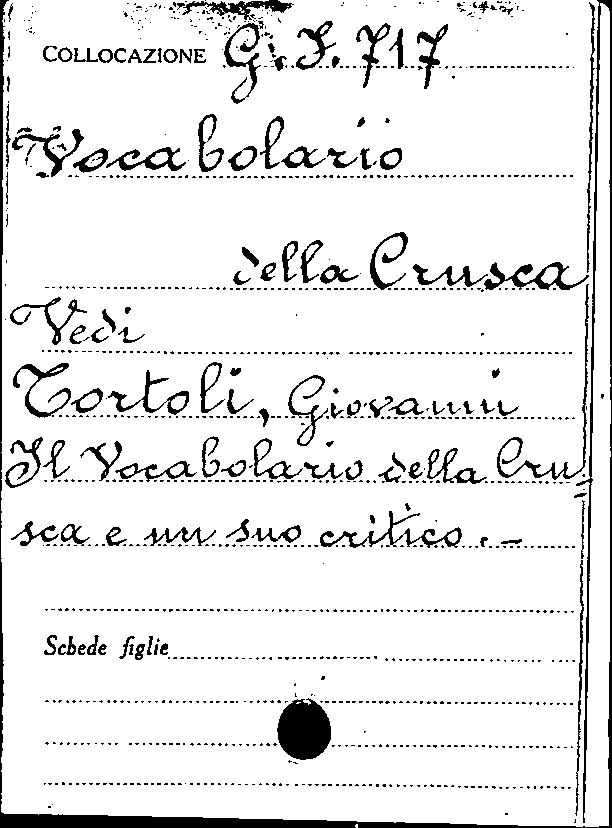 COLLOCAZIONE G. J. 717
Vocabolario
della Crusca
Vedi
Tortoli, Giovanni
Il Vocabolario della Cru=
sca e un suo critico. -
Schede figlie